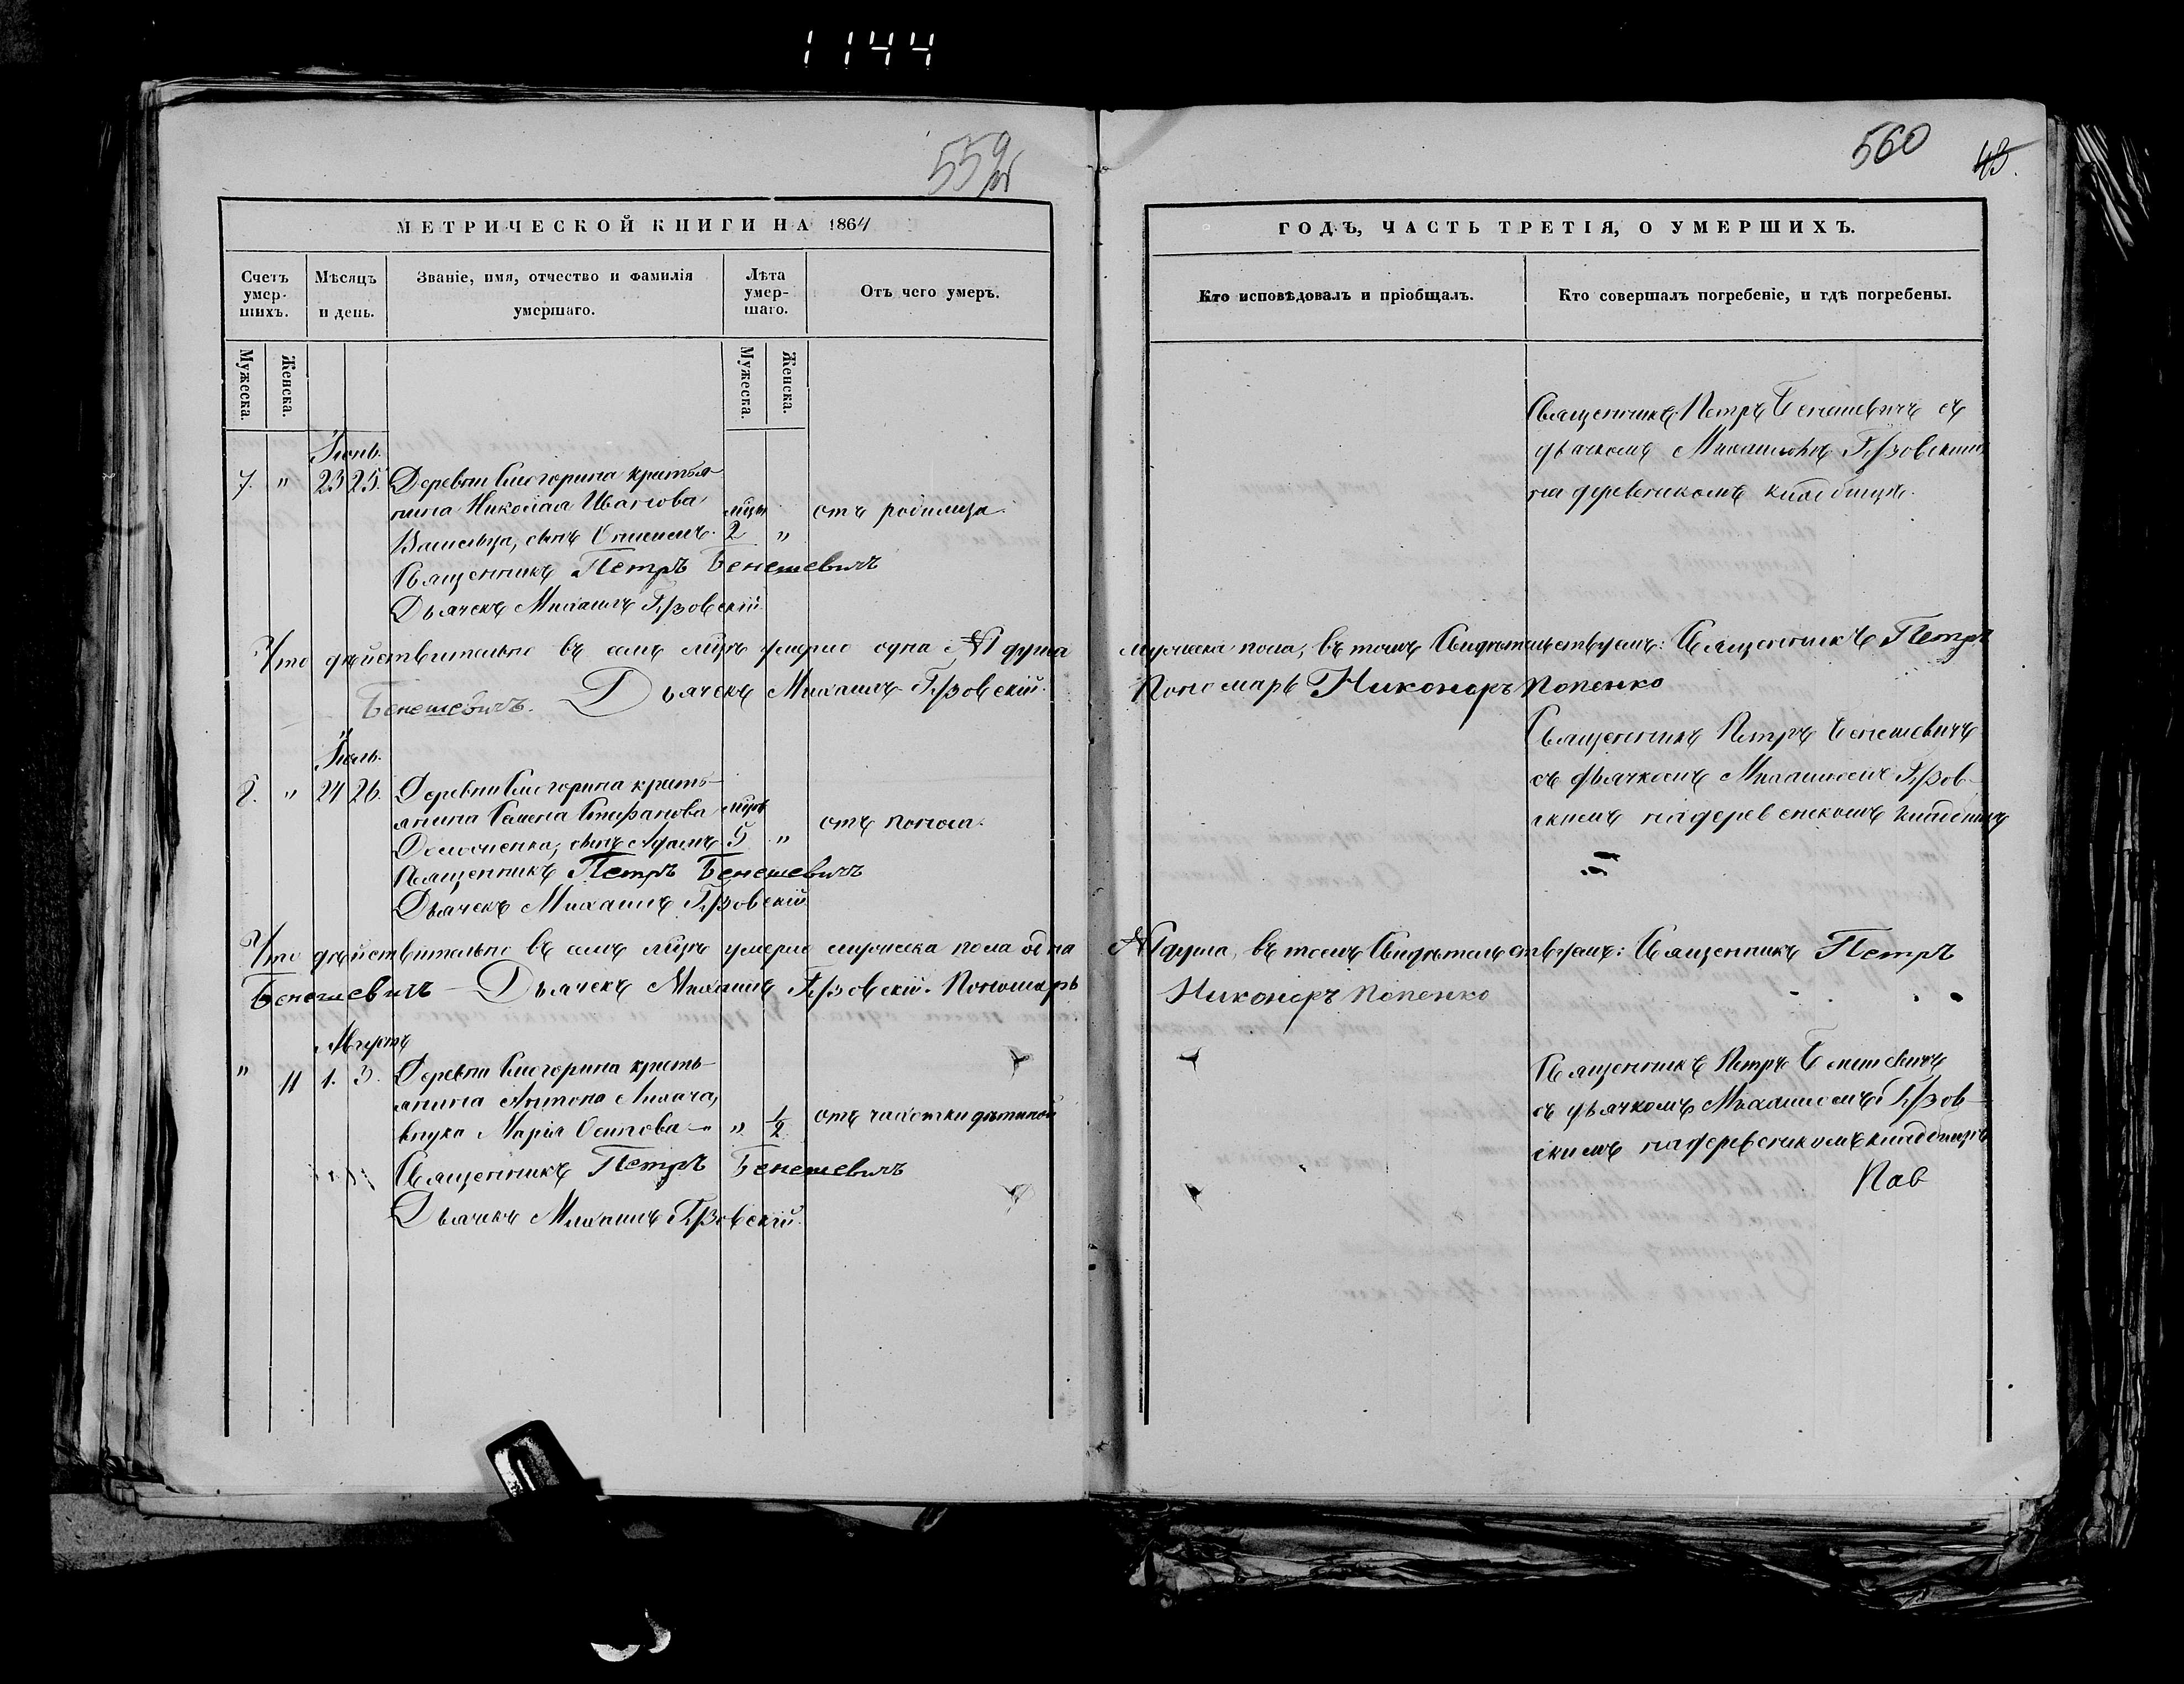 1144
559об
560
43.
МЕТРИЧЕСКОЙ КНИГИ НА 1864
ГОДЪ, ЧАСТЬ ТРЕТІЯ, О УМЕРШИХЪ.
Счетъ умер-
шихъ.
Мѣсяцъ
и день.
Званіе, имя, отчество и фамилія
умершаго.
Лѣта
умер-
шаго.
Отъ чего умеръ.
Кто исповѣдовалъ и пріобщалъ.
Кто совершалъ погребеніе, и гдѣ погребены.
Мужеска.
Женска.
Мужеска.
Женска.
Іюнь.
7. " 23 25. Деревни крестья-
нина Николая Иванова
сынъ мцы 2 " отъ родимца.
Священникъ Петръ Бенешевичъ
Дьячекъ Михаилъ
Священникъ Петръ Бенешевичъ съ
дьячкомъ Михаиломъ
на деревенскомъ кладбищѣ.
Что дѣйствительно въ семъ мцѣ умерло одна №1 душа
мужеска пола, въ томъ Свидѣтельствуемъ: Священникъ Петръ
Бенешевичъ. Дьячекъ Михаилъ
Пономарь Никоноръ Попенко
Іюль.
8. " 24 26. Деревни крестья-
янина Семена Стефанова мцвъ
сынъ Адамъ 5 " отъ поноса.
Священникъ Петръ Бенешевичъ
Дьячекъ Михаилъ
Священникъ Петръ Бенешевичъ
съ дьячкомъ Михаиломъ
скимъ на деревенскомъ кладбищѣ
Что дѣйствительно въ семъ мцѣ умерло мужеска пола одна
№1 душа, въ томъ Свидѣтельствуемъ: Священникъ Петръ
Бенешевичъ Дьячекъ Михаилъ Пономарь
Никоноръ Попенко
Августъ
" 11 1. 3. Деревни кресть-
янина Антона
внука Марія Осипова " 1/2 отъ чахотки дѣтиной
Священникъ Петръ Бенешевичъ
Дьячекъ Михаилъ
Священникъ Петръ Бенешевичъ
съ дьячкомъ Михаиломъ
скимъ на деревенскомъ кладбищѣ
Пав